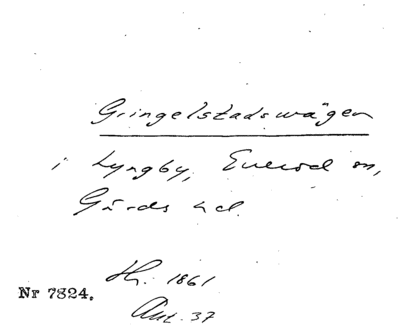 Gringelstadsvägen
i Lyngby, Everöd sn,
Gärds hd.
Hr. 1861
Nr 7824.
Akt. 37